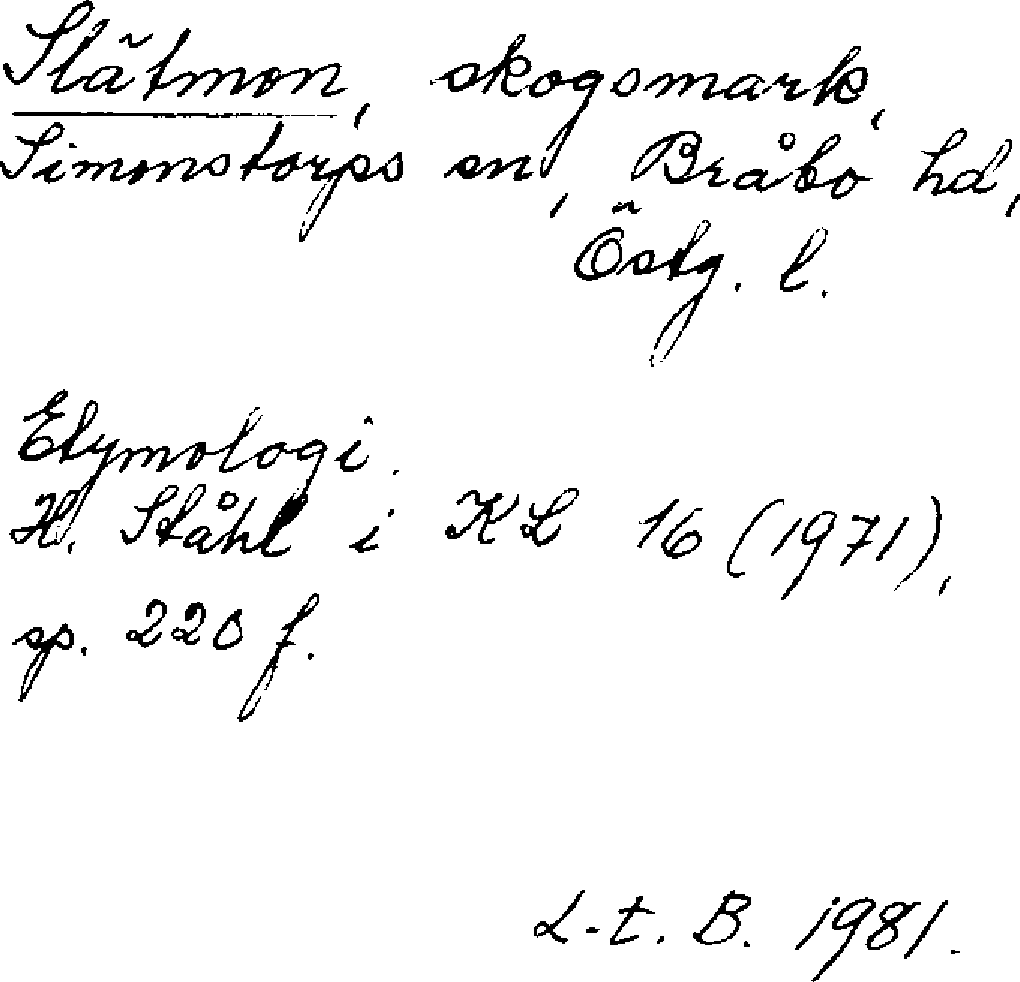 Slätmon, skogsmark,
Simonstorps sn, Bråbo hd,
Östg. l.
Etymologi.
H. Ståhl i KL 16 (1971),
sp. 220 f.
L-t. B. 1981.